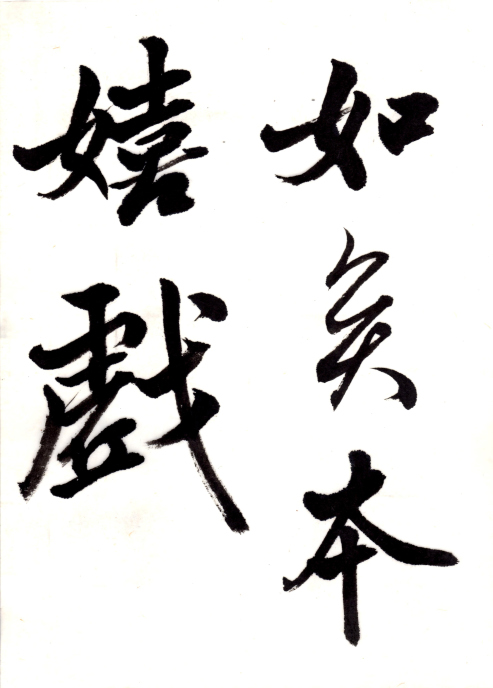 如魚本
嬉戲